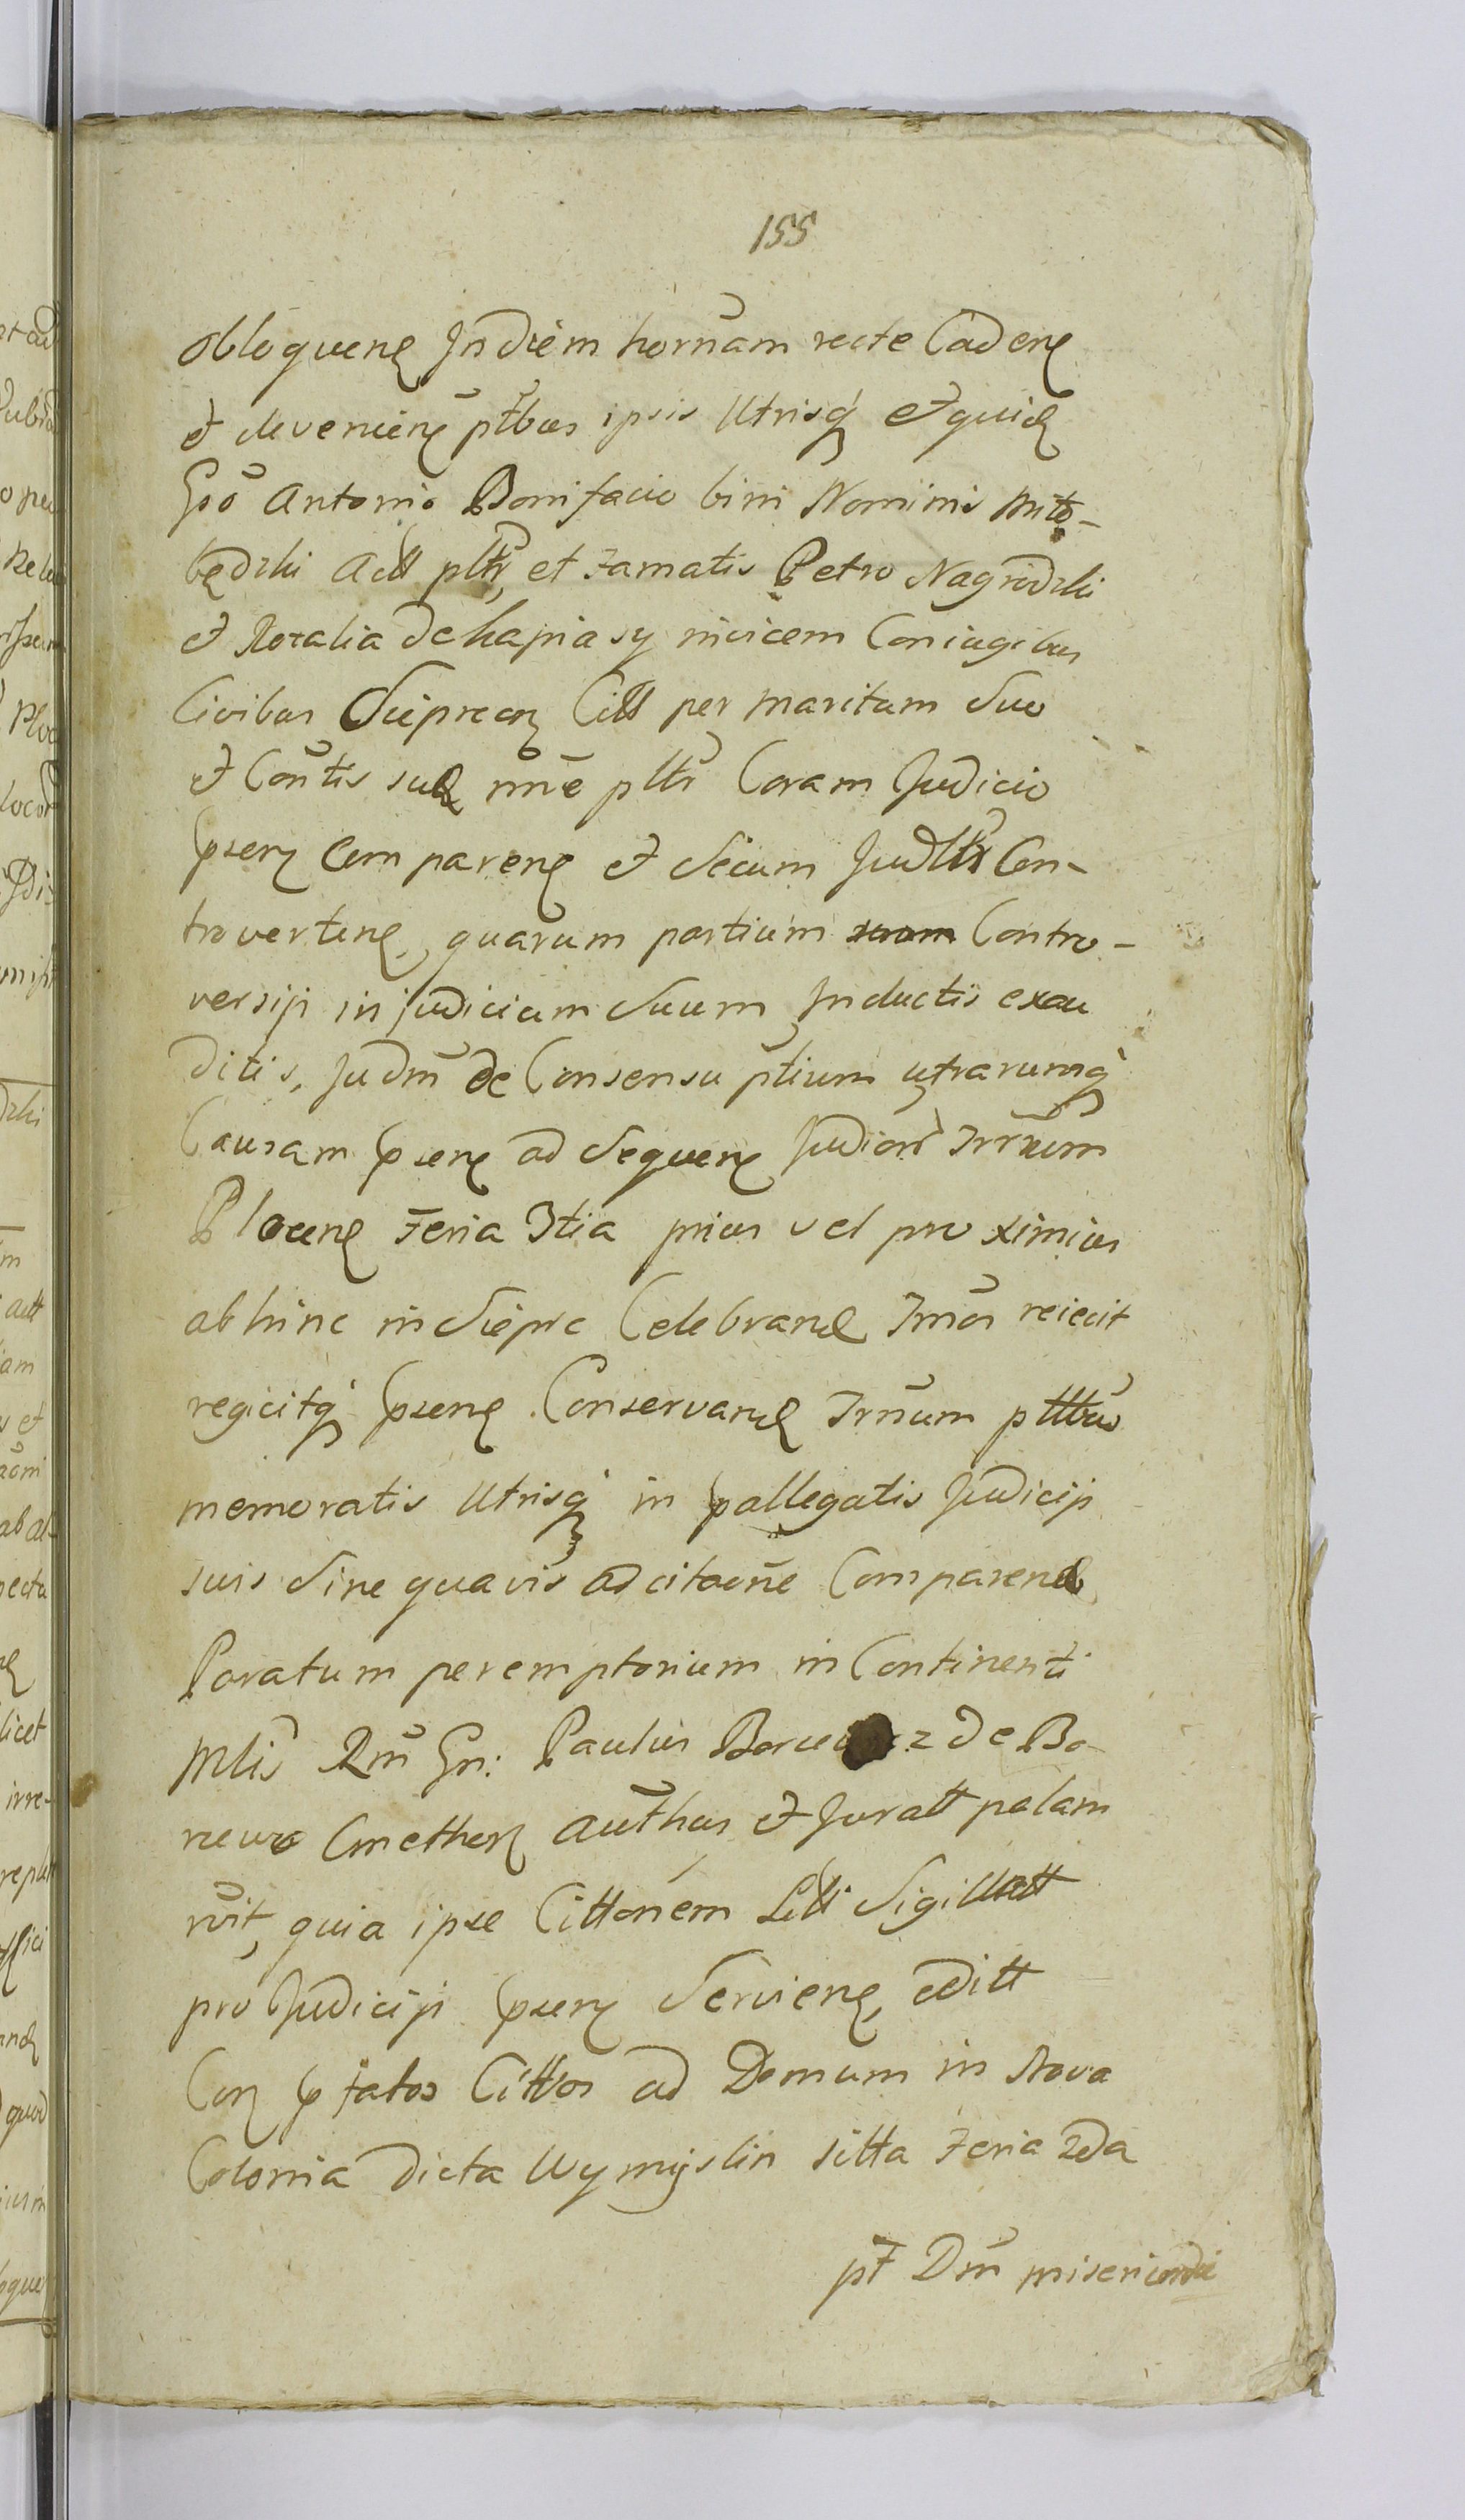 155
obloquen Jn diem hornam recte Caden
et devenien ptbus ipsis Utrisq et quid
Gso Antonio Bonifacio bini Nominis Mito-
będzki Act pltr, et Famatis Petro Nagrodzki
et Rozalia de hapiasy invicem Coniugibus
Civibus Sieprcen Citt per maritum Suo
et Contis suæ nne pltr Coram Judicio
psen Comparen et Secum Judltr Con-
troverten, quarum partium Contro-
versiji in judicium Suum Jnductis exau
ditis, Judm de Consensu ptium utrarumq
Causam psen ad Sequen Judior Trrnum
Plocen Feria 3tia prius vel proximius
abhinc in Sieprc Celebrand Trnos reiecit
regicitq psen Conservand Trnum pttbus
memoratis Utrisq in pallegatis Judicijs
suis Sine quavis adcitaone Comparend
Paratum peremptorium in Continenti
Mlis Rm Gn: Paulus de Bo-
rzewo Cmethon Authus et Juratt palam
rvit, quia ipse Cittonem Litt Sigillatt
pro Judiciji psen Servien, editt
Con pfatos Cittos ad Domum in Nova
Colonia dicta Wymyslin sitta Feria 2da
pt Dm misericordi